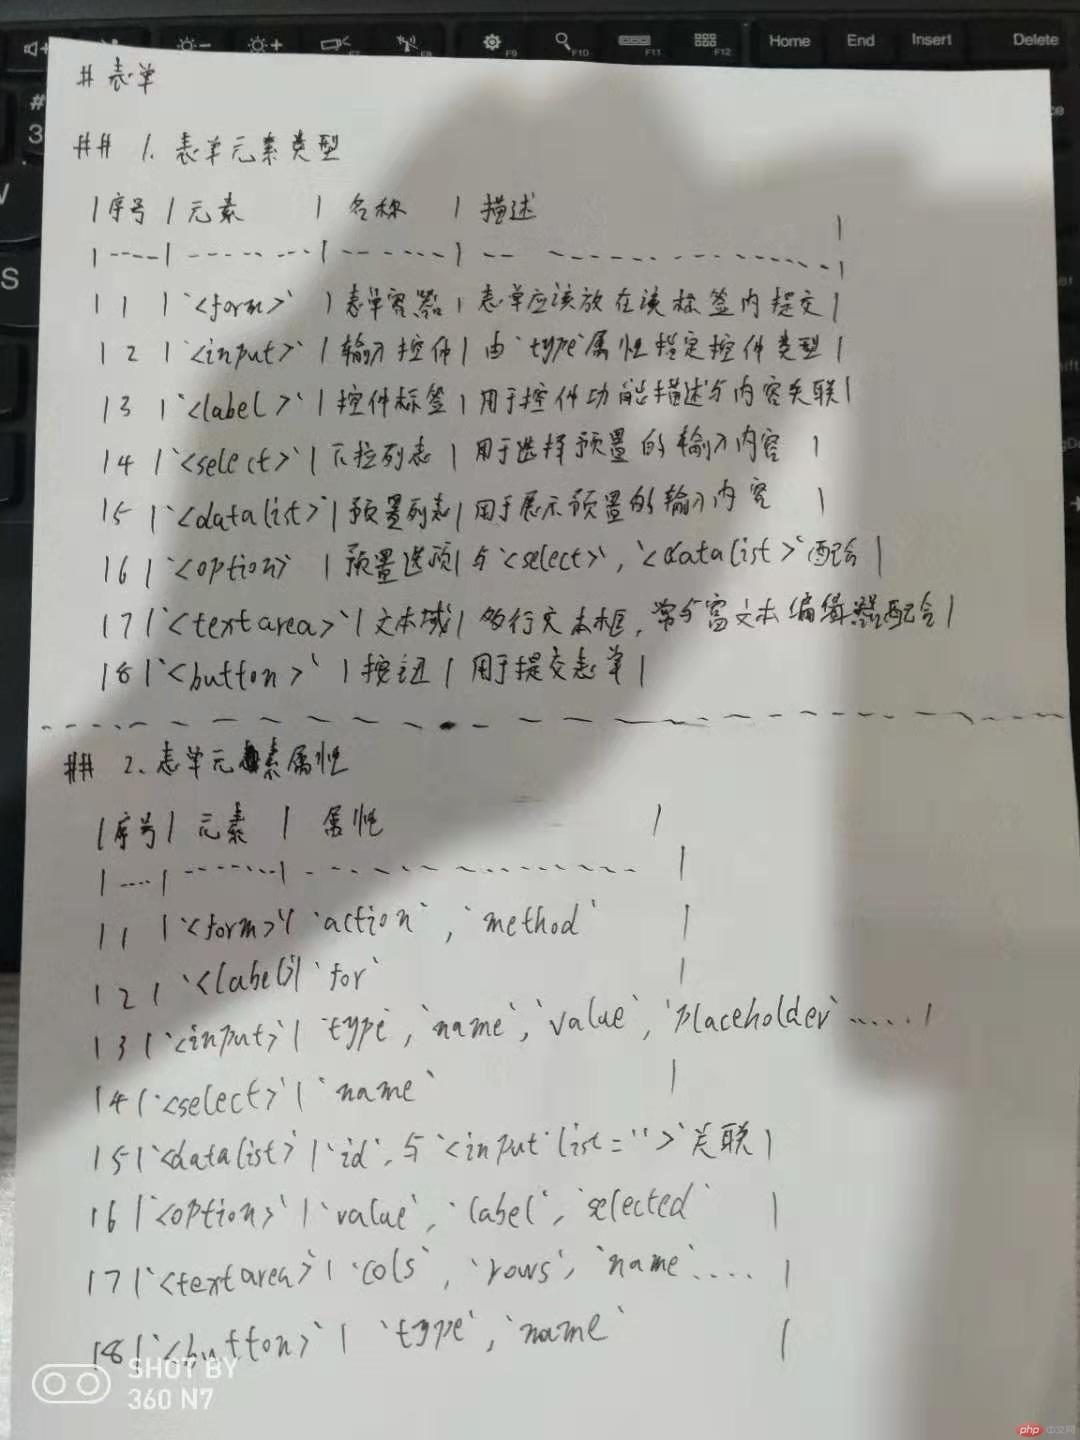 # 表单
## 1. 表单元素类型
|序号|元素 | 名称 | 描述 |
|----|-------|------|-- ----------|
|1 |`<form>` |表单容器|表单应该放在该标签内提交|
|2 |`<input>`|输入控件|由`type`属性指定控件类型|
|3 |`<label>`|控件标签|用于控件功能描述与内容关联|
|4 |`<select>`|下拉列表|用于选择预置的输入内容 |
|5 |`<datalist>`|预置列表|用于展示预置的输入内容 |
|6 |`<option>` |预置选项|与`<select>`,`<datalist>`配合|
|7|`<textarea>`|文本域|多行文本框,常与富文本编辑器配合|
|8|`<button>` |按钮|用于提交表单|
## 2. 表单元素属性
|序号|元素 | 属性 |
|----|-------|--------------|
|1 |`<form>`|`action`,`method` |
|2 |`<label>`|`for` |
|3|`<input>`|`type`,`name`,`value`,`placeholder`.....|
|4|`<select>`|`name` |
|5|`<datalist>`|`id`,与`<input list=''>`关联|
|6|`<option>`|`value`,`label`,`selected` |
|7|`<textarea>`|`cols`,`rows`,`name`.... |
|8|`<button>`|`type`,`name` |
SHOT BY
360 N7
php 中文网
Home End Insert Delete
F9 F10 F11 F12